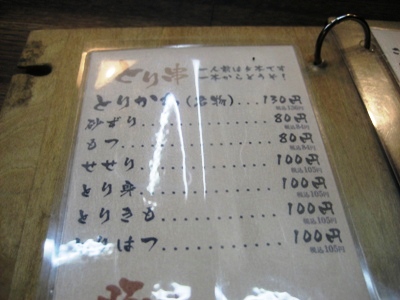 とり串
一人前は5本です
一本からどうぞ!
とりかわ(名物)...130円
砂ずり..............80円
税込84円
もつ................80円
税込84円
せせり.............100円
税込105円
とり身.............100円
税込105円
とりきも...........100円
税込105円
とりはつ...........100円
税込105円